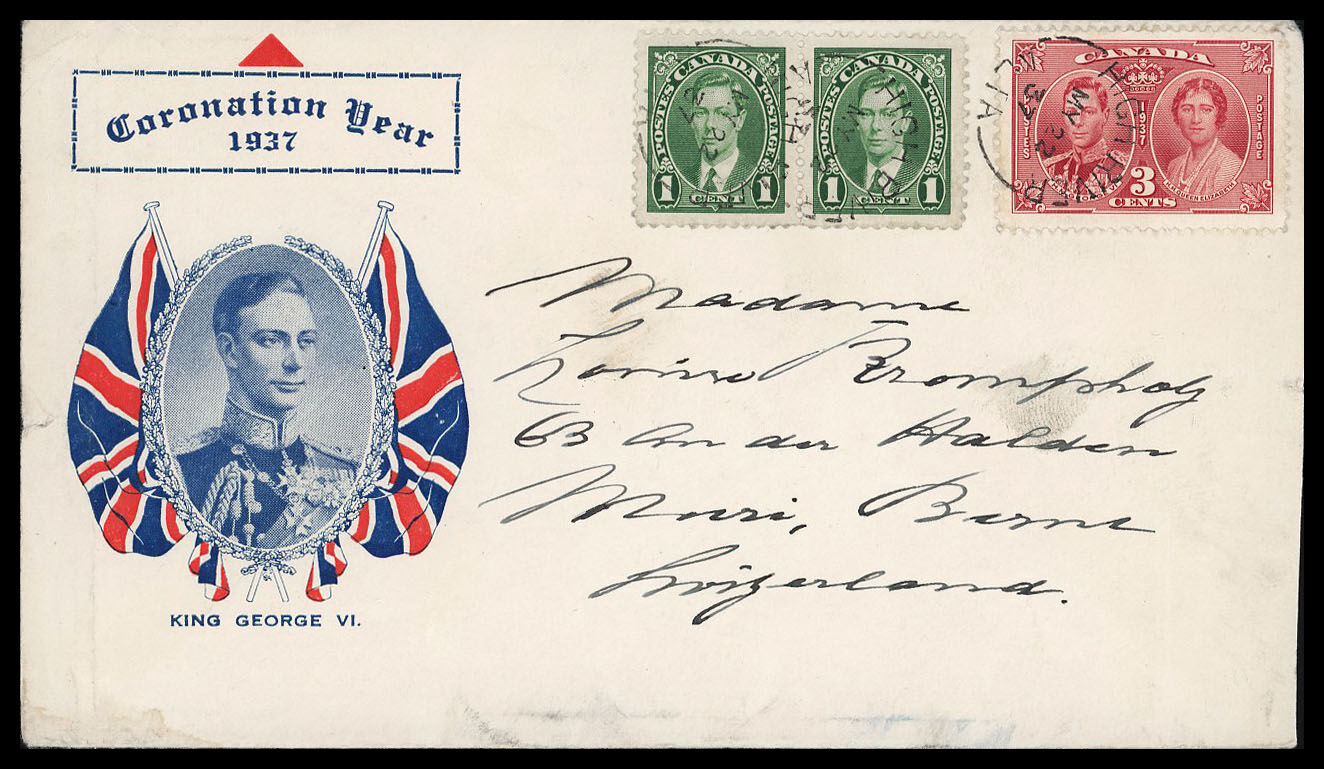 Coronation Year
1937
KING GEORGE VI.
CANADA
POSTES
POSTAGE
1
CENT
1
CANADA
POSTES
POSTAGE
1
CENT
1
CANADA
POSTES
POSTAGE
1937
H.M. QUEEN ELIZABETH
3
CENTS
HIGH RIVER
MY 22
37
ALTA
HIGH RIVER
MY 22
37
Madame
Louise
63 An der Halden
Muri, Berne
Switzerland.